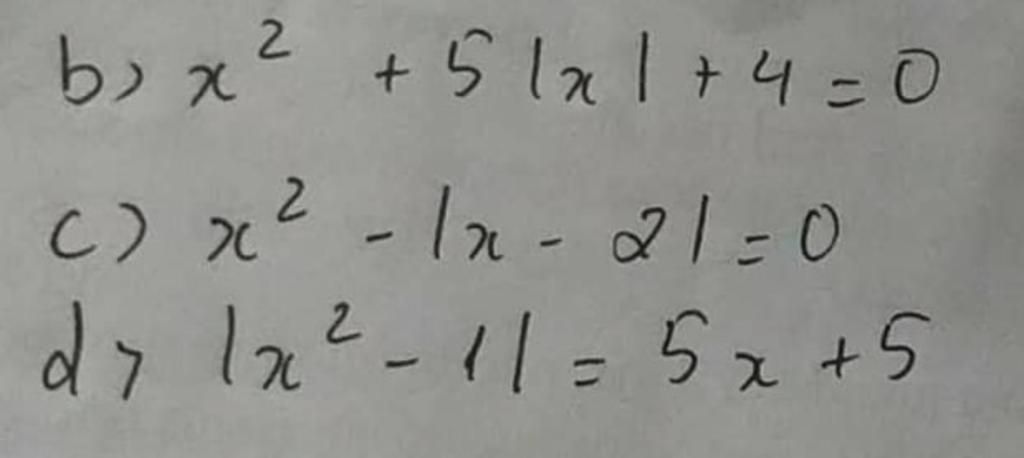 b) x² + 5|x| + 4 = 0
c) x² - |x - 2| = 0
d) |x² - 1| = 5x + 5